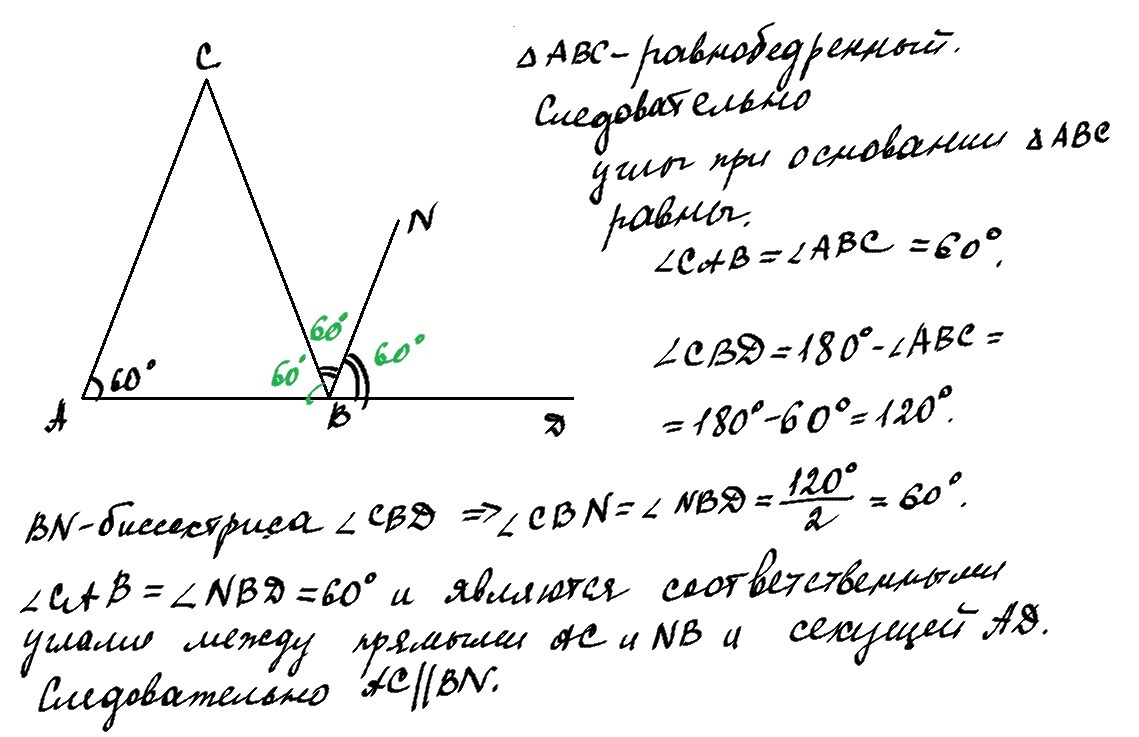 C
N
60°
60°
60°
60°
A
B
D
△ABC-равнобедренный.
Следовательно
углы при основании △ABC
равны.
∠CAB=∠ABC=60°.
∠CBD=180°-∠ABC=
=180°-60°=120°.
BN-биссектриса ∠CBD ⇒∠CBN=∠NBD=120°/2=60°.
∠CAB=∠NBD=60° и являются соответственными
углами между прямыми AC и NB и секущей AD.
Следовательно AC||BN.